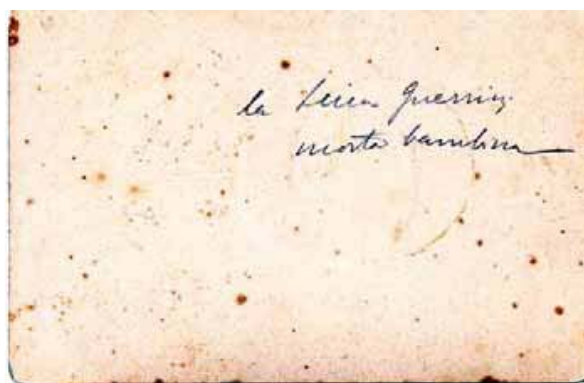 la Luisa Guerrini
morta bambina